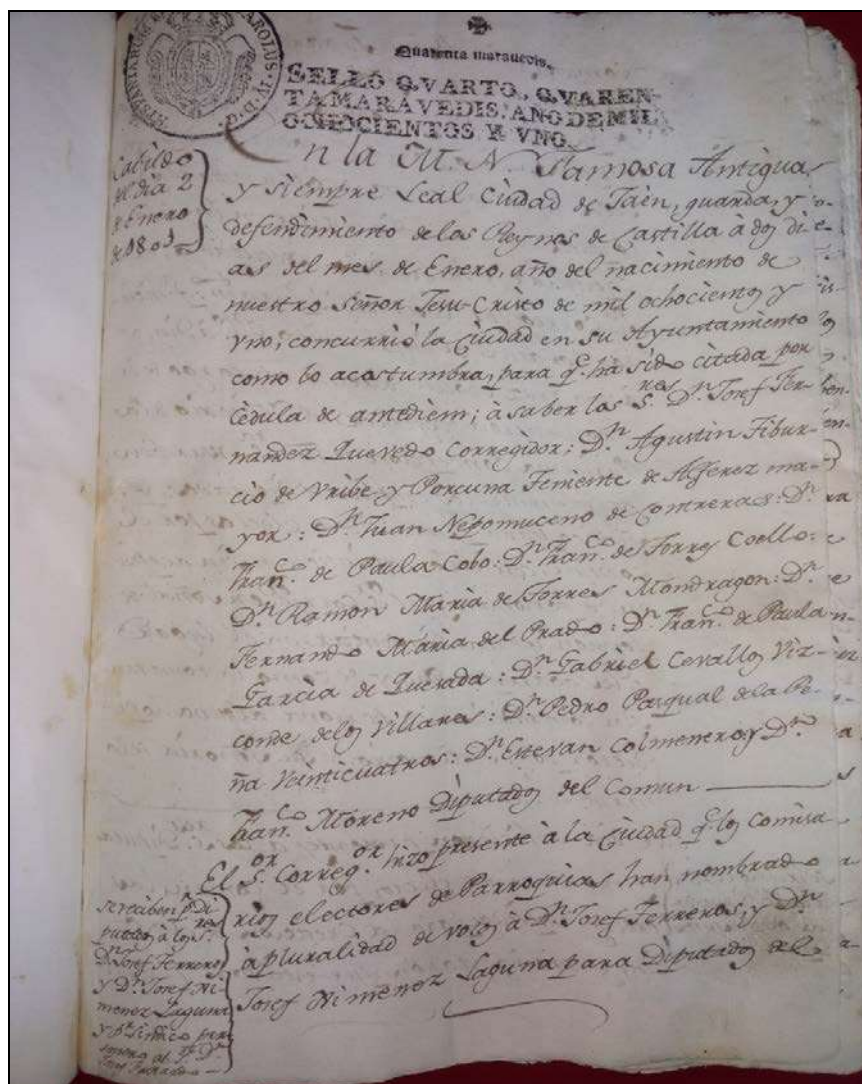 HISPANIARUM R CAROLUS·IV·D·G·
Quarenta maravedis.
SELLO QVARTO, QVAREN-
TA MARAVEDIS, AÑO DE MIL
OCHOCIENTOS Y VNO.
Cabildo
del dia 2
de Enero
de 1801
En la M. N. Famosa Antigua,
y siempre Leal Ciudad de Jaen, guarda, y
defendimiento de los Reynos de Castilla à dos di-
as del mes de Enero, año del nacimiento de
nuestro Señor Jesu-Cristo de mil ochocientos y
vno; concurriò la Ciudad en su Ayuntamiento
como lo acostumbra, para q.e ha sido citada por
cèdula de antediem; à saber los S.res D.n Josef Fer-
nandez Quevedo Corregidor: D.n Agustin Tibur-
cio de Vribe y Porcuna Teniente de Alferez ma-
yor: D.n Juan Nepomuceno de Contreras: D.n
Fran.co de Paula Cobo: D.n Fran.co de Torres Coello:
D.n Ramon Maria de Torres Mondragon: D.n
Fernando Maria del Prado: D.n Fran.co de Paula
Garcia de Quesada: D.n Gabriel Cevallos Viz-
conde de los Villares: D.n Pedro Pasqual de la Pe-
ña Veinticuatros: D.n Estevan Colmenero, y D.n
Fran.co Moreno Diputados del Comun
El S.or Correg.or hizo presente à la Ciudad q.e los Comisa
rios electores de Parroquias han nombrado
à pluralidad de votos à D.n Josef Ferreros, y D.n
Josef Ximenez Laguna para Diputados del
Se reciben p.r Di-
putados à los S.res
D.n Josef Ferreros
y D.n Josef Xi-
menez Laguna
y p.r Sindico per-
sonero al D.n